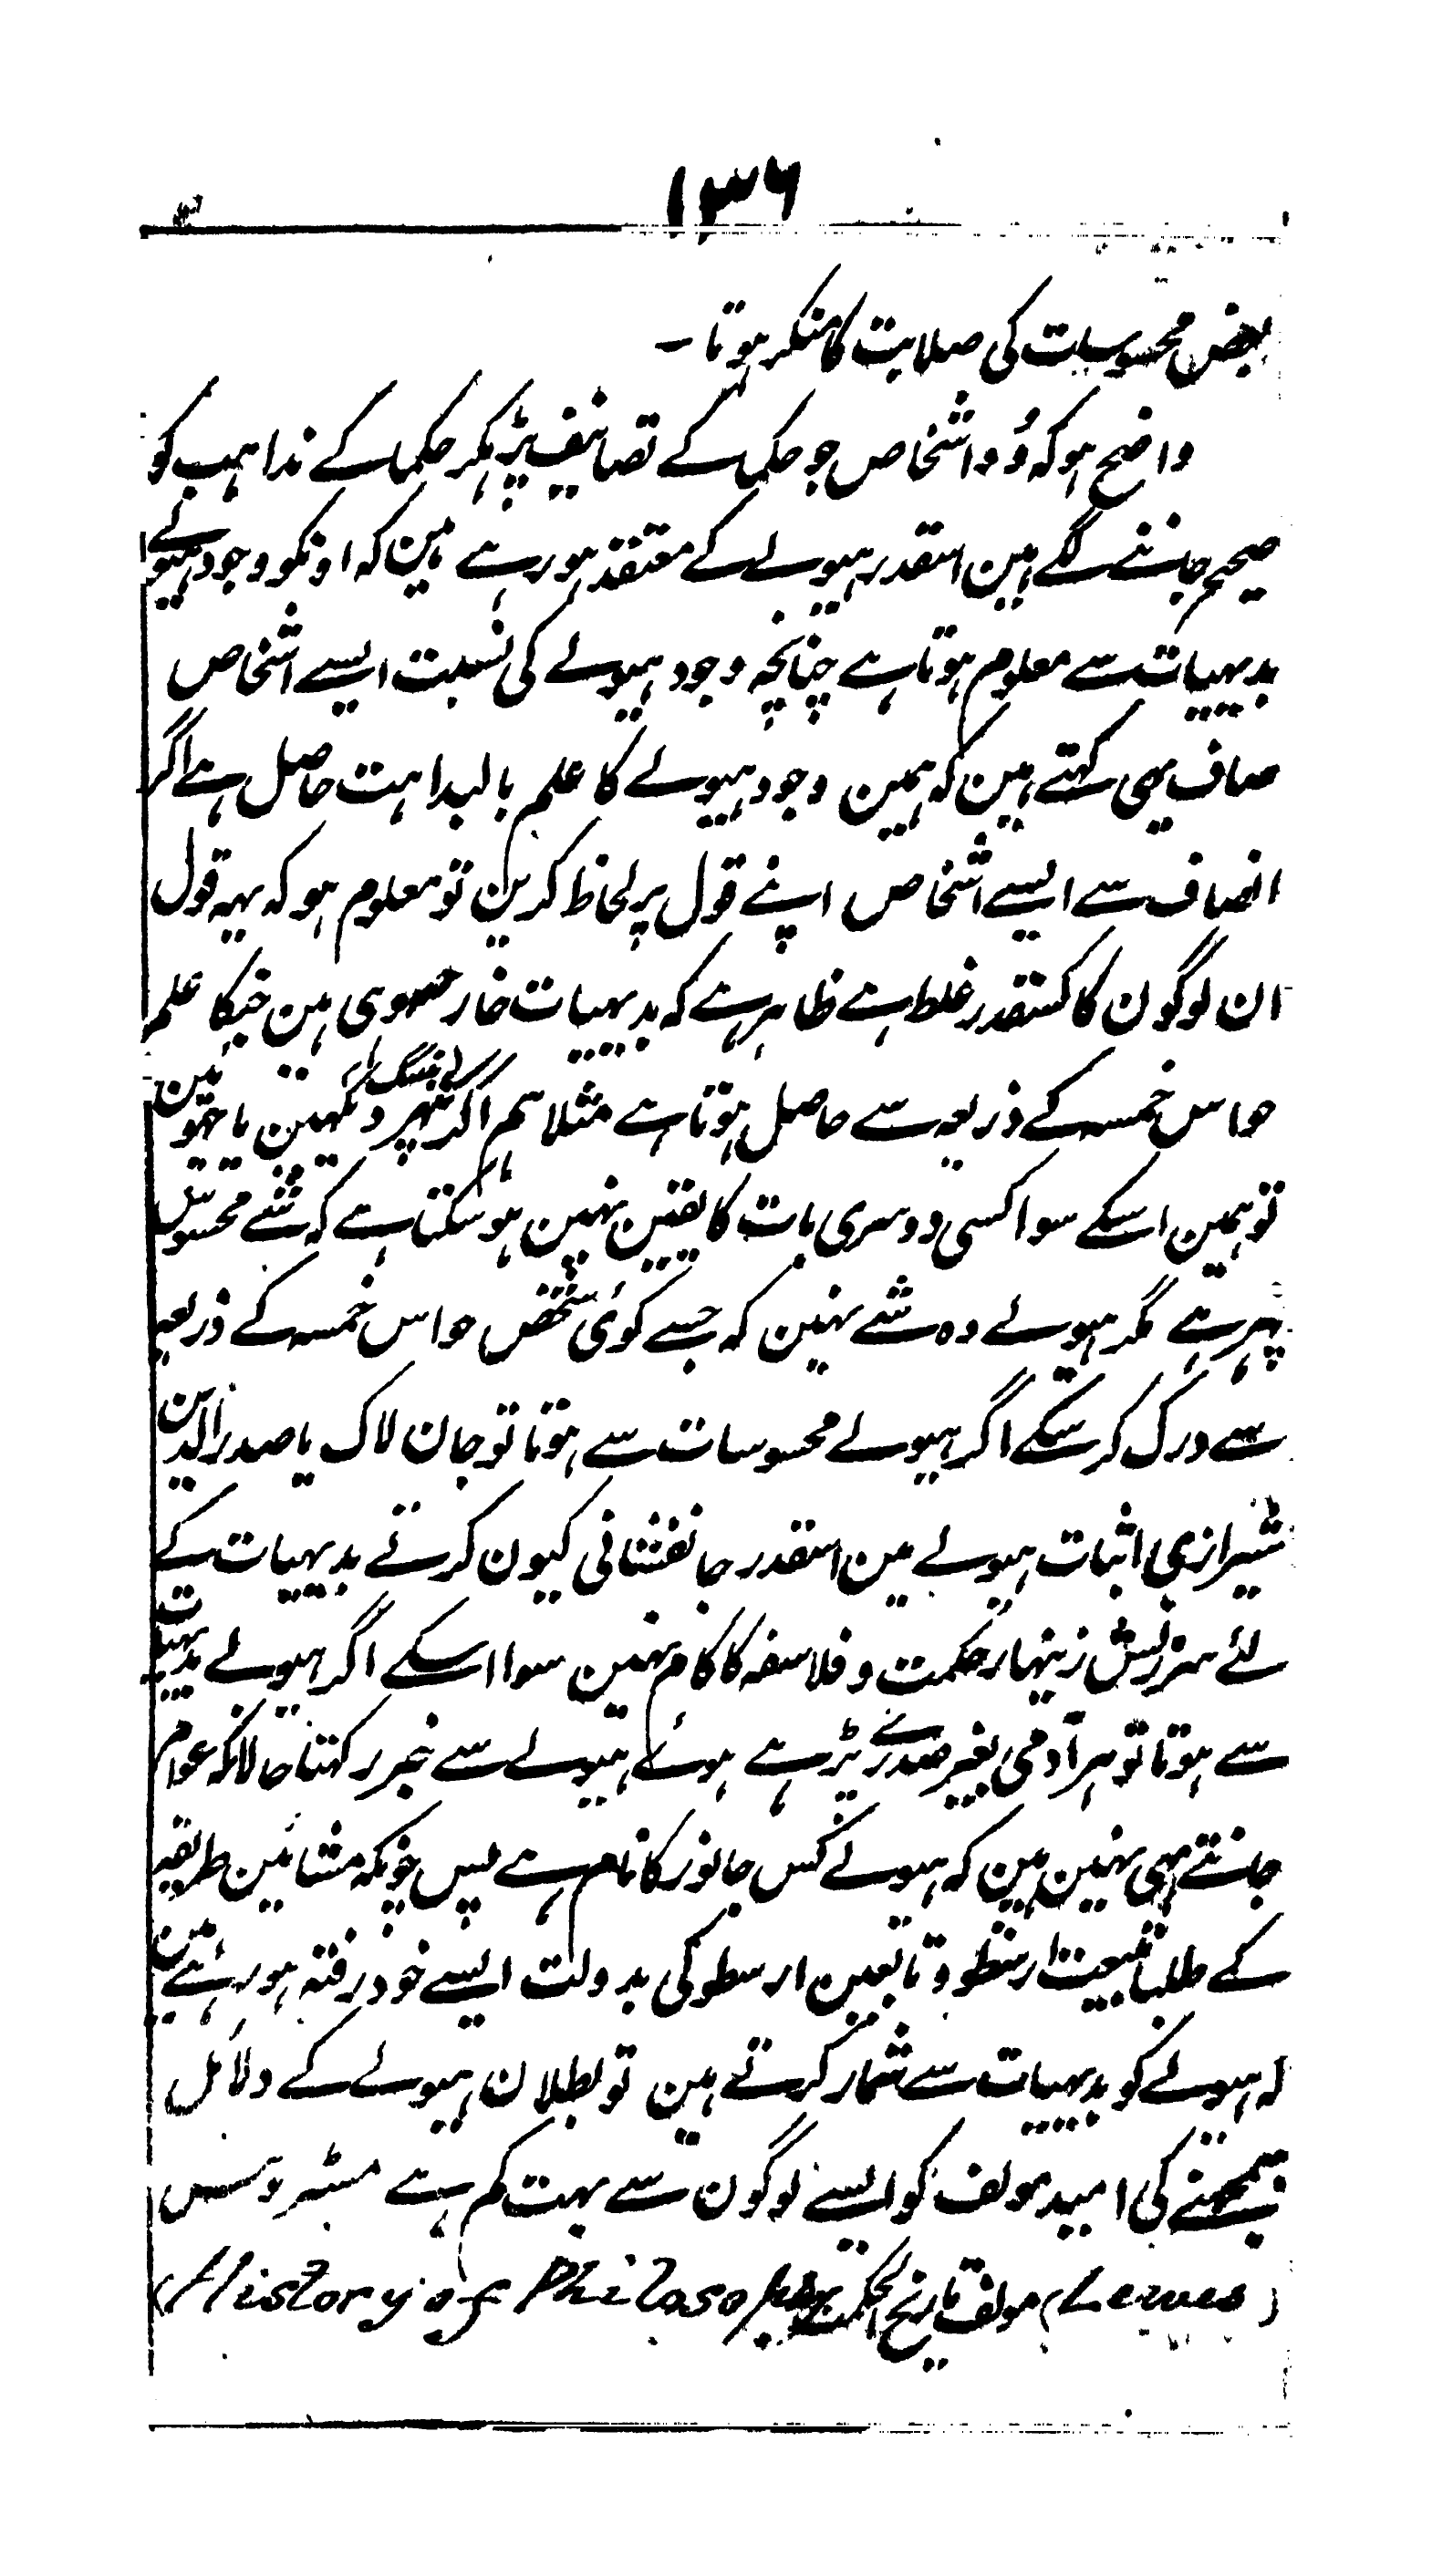 ١٣٦
بعض محسوسات کی صلابت کا منکر ہوتا۔
واضح ہو کہ وُہ اشخاص جو حکما کے تصانیف پڑہکر حکما کے مذاہب کو
صحیح جاننے لگے ہین اسقدر ہیولے کے معتقد ہو رہے ہین کہ اونکو وجود ہیولے
بدیہیات سے معلوم ہوتا ہے چنانچہ وجود ہیولے کی نسبت ایسے اشخاص
صاف یہی کہتے ہین کہ ہمین وجود ہیولے کا علم بالبداہت حاصل ہے اگر
انصاف سے ایسے اشخاص اپنے قول پر لحاظ کرین تو معلوم ہو کہ یہہ قول
ان لوگون کا کسقدر غلط ہے ظاہر ہے کہ بدیہیات خارجہ وہی ہین جنکا علم
حواس خمسہ کے ذریعہ سے حاصل ہوتا ہے مثلا ہم اگر پتہر دیکہین یا چہوئین
تو ہمین اسکے سوا کسی دوسری بات کا یقین نہین ہو سکتا ہے کہ شے محسوس
پتہر ہے مگر ہیولے وہ شے نہین کہ جسے کوئی شخص حواس خمسہ کے ذریعہ
سے درک کر سکے اگر ہیولے محسوسات سے ہوتا تو جان لاک یا صدرالدین
شیرازی اثبات ہیولے مین اسقدر جانفشانی کیون کرتے بدیہیات کے
لئے سرزنش زینہار حکمت و فلاسفہ کا کام نہین سوا اسکے اگر ہیولے بدیہیات
سے ہوتا تو ہر آدمی بغیر صدرے پڑہے ہوئے ہیولے سے خبر رکہتا حالانکہ عوام
جانتے بہی نہین ہین کہ ہیولے کس جانور کا نام ہے پس چونکہ مشائین طریقہ
کے طلبا تبعیت ارسطو و تابعین ارسطو کی بدولت ایسے خود رفتہ ہو رہے ہین
کہ ہیولے کو بدیہیات سے شمار کرتے ہین تو بطلان ہیولے کے دلائل
سمجہنے کی امید مولف کو ایسے لوگون سے بہت کم ہے مسٹر
(Lewes) مولف تاریخ الحکمت (History of Philosophy